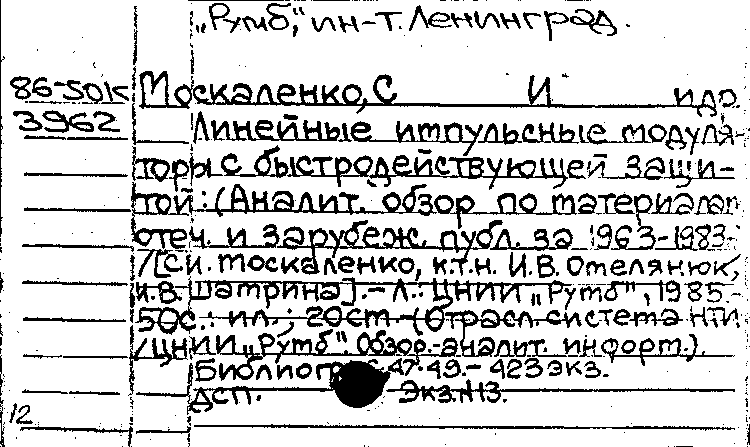 „Румб“, ин-т. Ленинград.
86-501с Москаленко, С И и др.
3962 Линейные импульсные модуля-
торы с быстродействующей защи-
той: (Аналит. обзор по материалам
отеч. и зарубеж. публ. за 1963-1983-
/[С.И. Москаленко, к.т.н. И.В. Омелянюк,
И.В. Шатрина]. - Л.: ЦНИИ „Румб“, 1985.-
50с.: ил.; 20см. - (Отрасл. система НТИ
/ЦНИИ „Румб“. Обзор.-аналит. информ.).
47-49. - 423экз.
ДСП. Экз.N13.
12